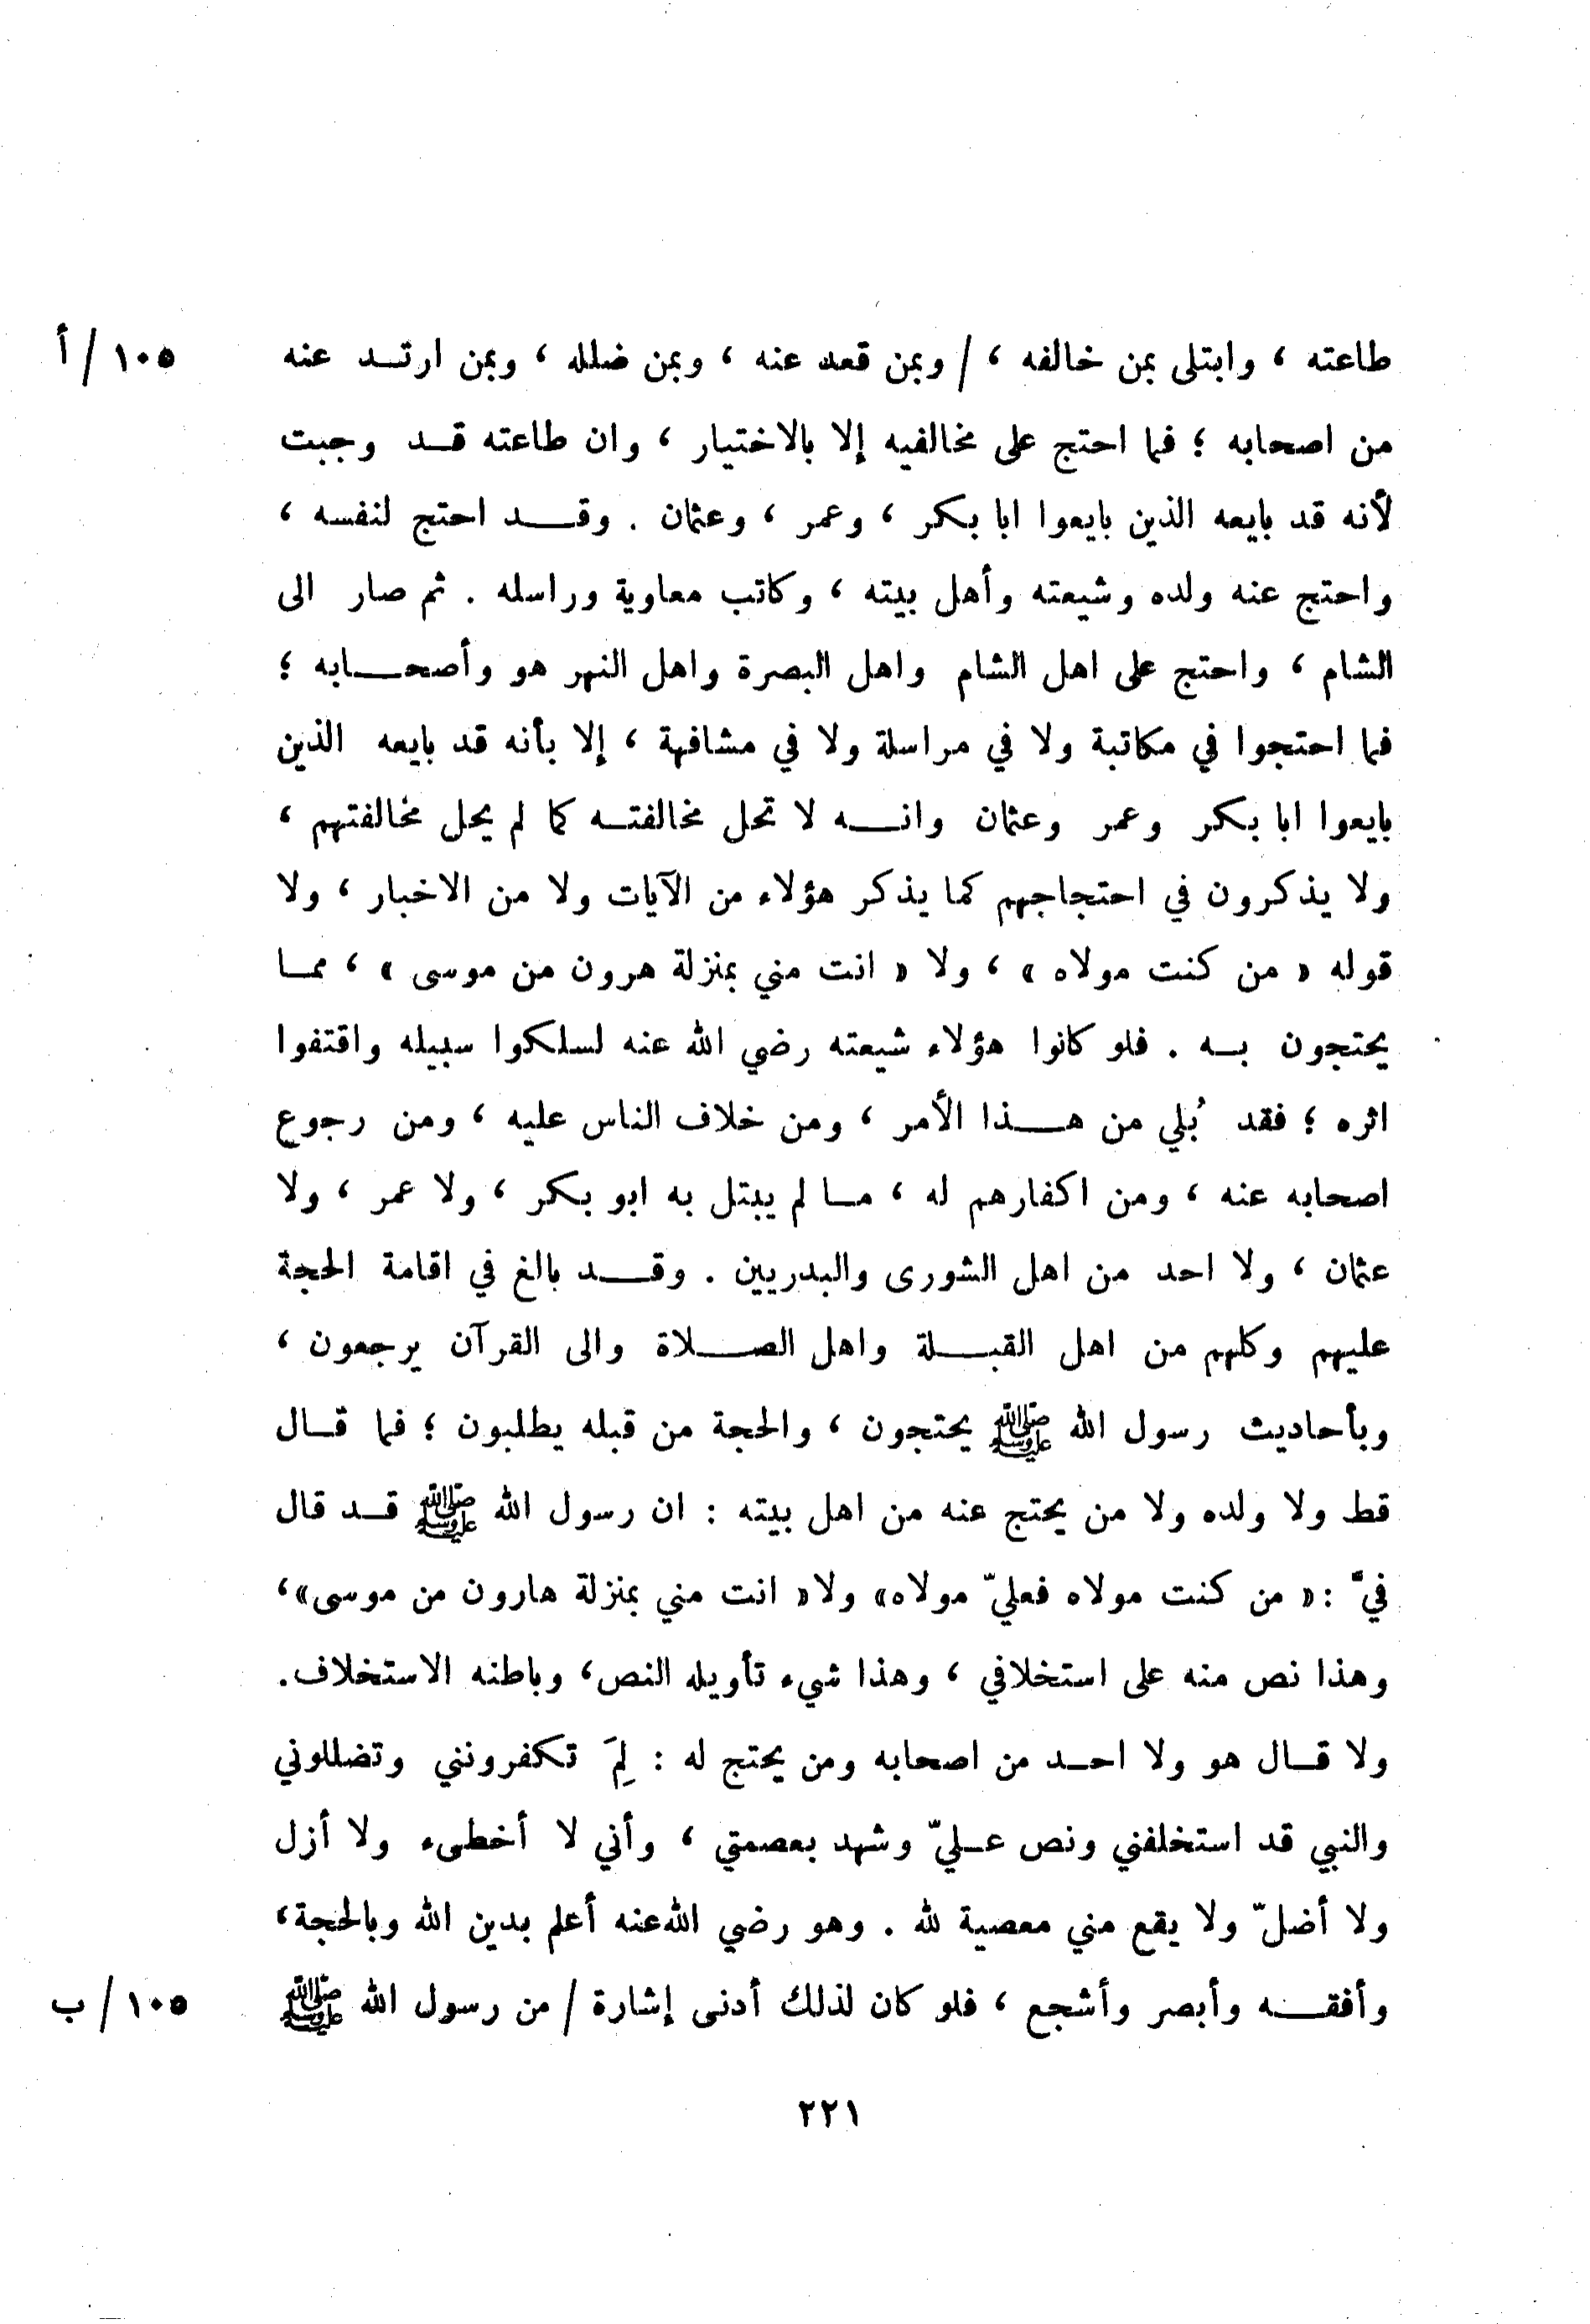 طاعته ، وابتلى بمن خالفه ، / وبمن قعد عنه ، وبمن ضلله ، وبمن ارتد عنه ١٠٥/أ
من اصحابه ؛ فما احتج على مخالفيه إلا بالاختيار ، وان طاعته قد وجبت
لأنه قد بايعه الذين بايعوا ابا بكر ، وعمر ، وعثمان . وقد احتج لنفسه ،
واحتج عنه ولده وشيعته وأهل بيته ، وكاتب معاوية وراسله . ثم صار الى
الشام ، واحتج على اهل الشام واهل البصرة واهل النهر هو وأصحابه ؛
فما احتجوا في مكاتبة ولا في مراسلة ولا في مشافهة ، إلا بأنه قد بايعه الذين
بايعوا ابا بكر وعمر وعثمان وانه لا تحل مخالفته كما لم يحل مخالفتهم ،
ولا يذكرون في احتجاجهم كما يذكر هؤلاء من الآيات ولا من الاخبار ، ولا
قوله « من كنت مولاه » ، ولا « انت مني بمنزلة هرون من موسى » ، مما
يحتجون به . فلو كانوا هؤلاء شيعته رضي الله عنه لسلكوا سبيله واقتفوا
اثره ؛ فقد بُلي من هذا الأمر ، ومن خلاف الناس عليه ، ومن رجوع
اصحابه عنه ، ومن اكفارهم له ، ما لم يبتل به ابو بكر ، ولا عمر ، ولا
عثمان ، ولا احد من اهل الشورى والبدريين . وقد بالغ في اقامة الحجة
عليهم وكلهم من اهل القبلة واهل الصلاة والى القرآن يرجعون ،
وبأحاديث رسول الله ﷺ يحتجون ، والحجة من قبله يطلبون ؛ فما قال
قط ولا ولده ولا من يحتج عنه من اهل بيته : ان رسول الله ﷺ قد قال
فيّ : « من كنت مولاه فعليّ مولاه» ولا« انت مني بمنزلة هارون من موسى»،
وهذا نص منه على استخلافي ، وهذا شيء تأويله النص، وباطنه الاستخلاف.
ولا قال هو ولا احد من اصحابه ومن يحتج له : لِمَ تكفرونني وتضللوني
والنبي قد استخلفني ونص عليّ وشهد بعصمتي ، وأني لا أخطىء ولا أزل
ولا أضلّ ولا يقع مني معصية لله . وهو رضي الله عنه أعلم بدين الله وبالحجة،
وأفقه وأبصر وأشجع ، فلو كان لذلك أدنى إشارة / من رسول الله ﷺ ١٠٥/ب
٢٢١